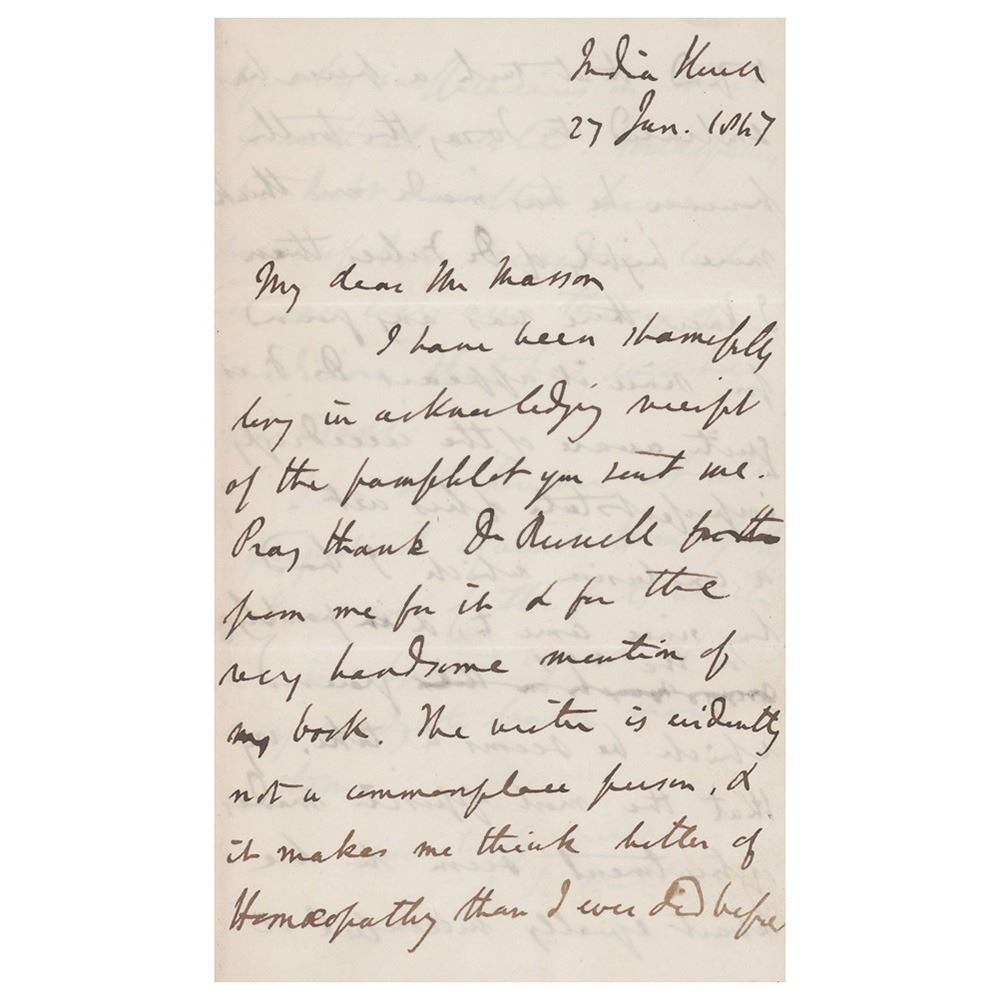 India House
27 Jan. 1847
My dear Mr Masson
I have been shamefully
long in acknowledging receipt
of the pamphlet you sent me.
Pray thank Dr Russell for the
from me for it & for the
very handsome mention of
my book. The writer is evidently
not a commonplace person, &
it makes me think better of
Homœopathy than I ever did before